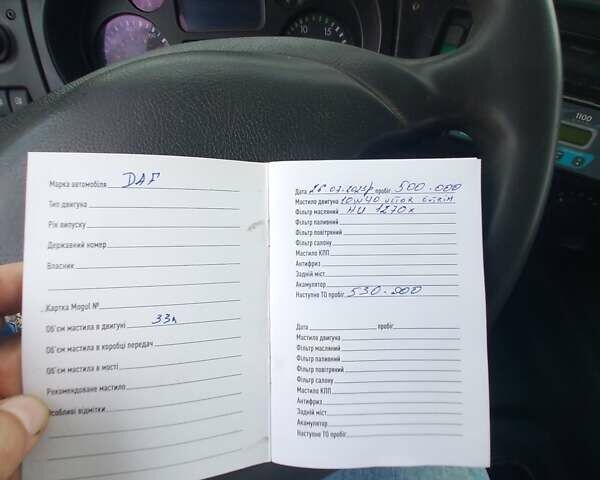 10 1.5
1100
Марка автомобіля DAF
Тип двигуна
Рік випуску
Державний номер
Власник
Картка Mogul №
Об'єм мастила в двигуні 33л
Об'єм мастила в коробці передач
Об'єм мастила в мості
Рекомендоване мастило
Особливі відмітки
Дата 26.07.202 пробіг 500.000
Мастило двигуна 10W40
Фільтр масляний HU 1270x
Фільтр паливний
Фільтр повітряний
Фільтр салону
Мастило КПП
Антифриз
Задній міст
Акамулятор
Наступне ТО пробіг 530.000
Дата пробіг
Мастило двигуна
Фільтр масляний
Фільтр паливний
Фільтр повітряний
Фільтр салону
Мастило КПП
Антифриз
Задній міст
Акамулятор
Наступне ТО пробіг